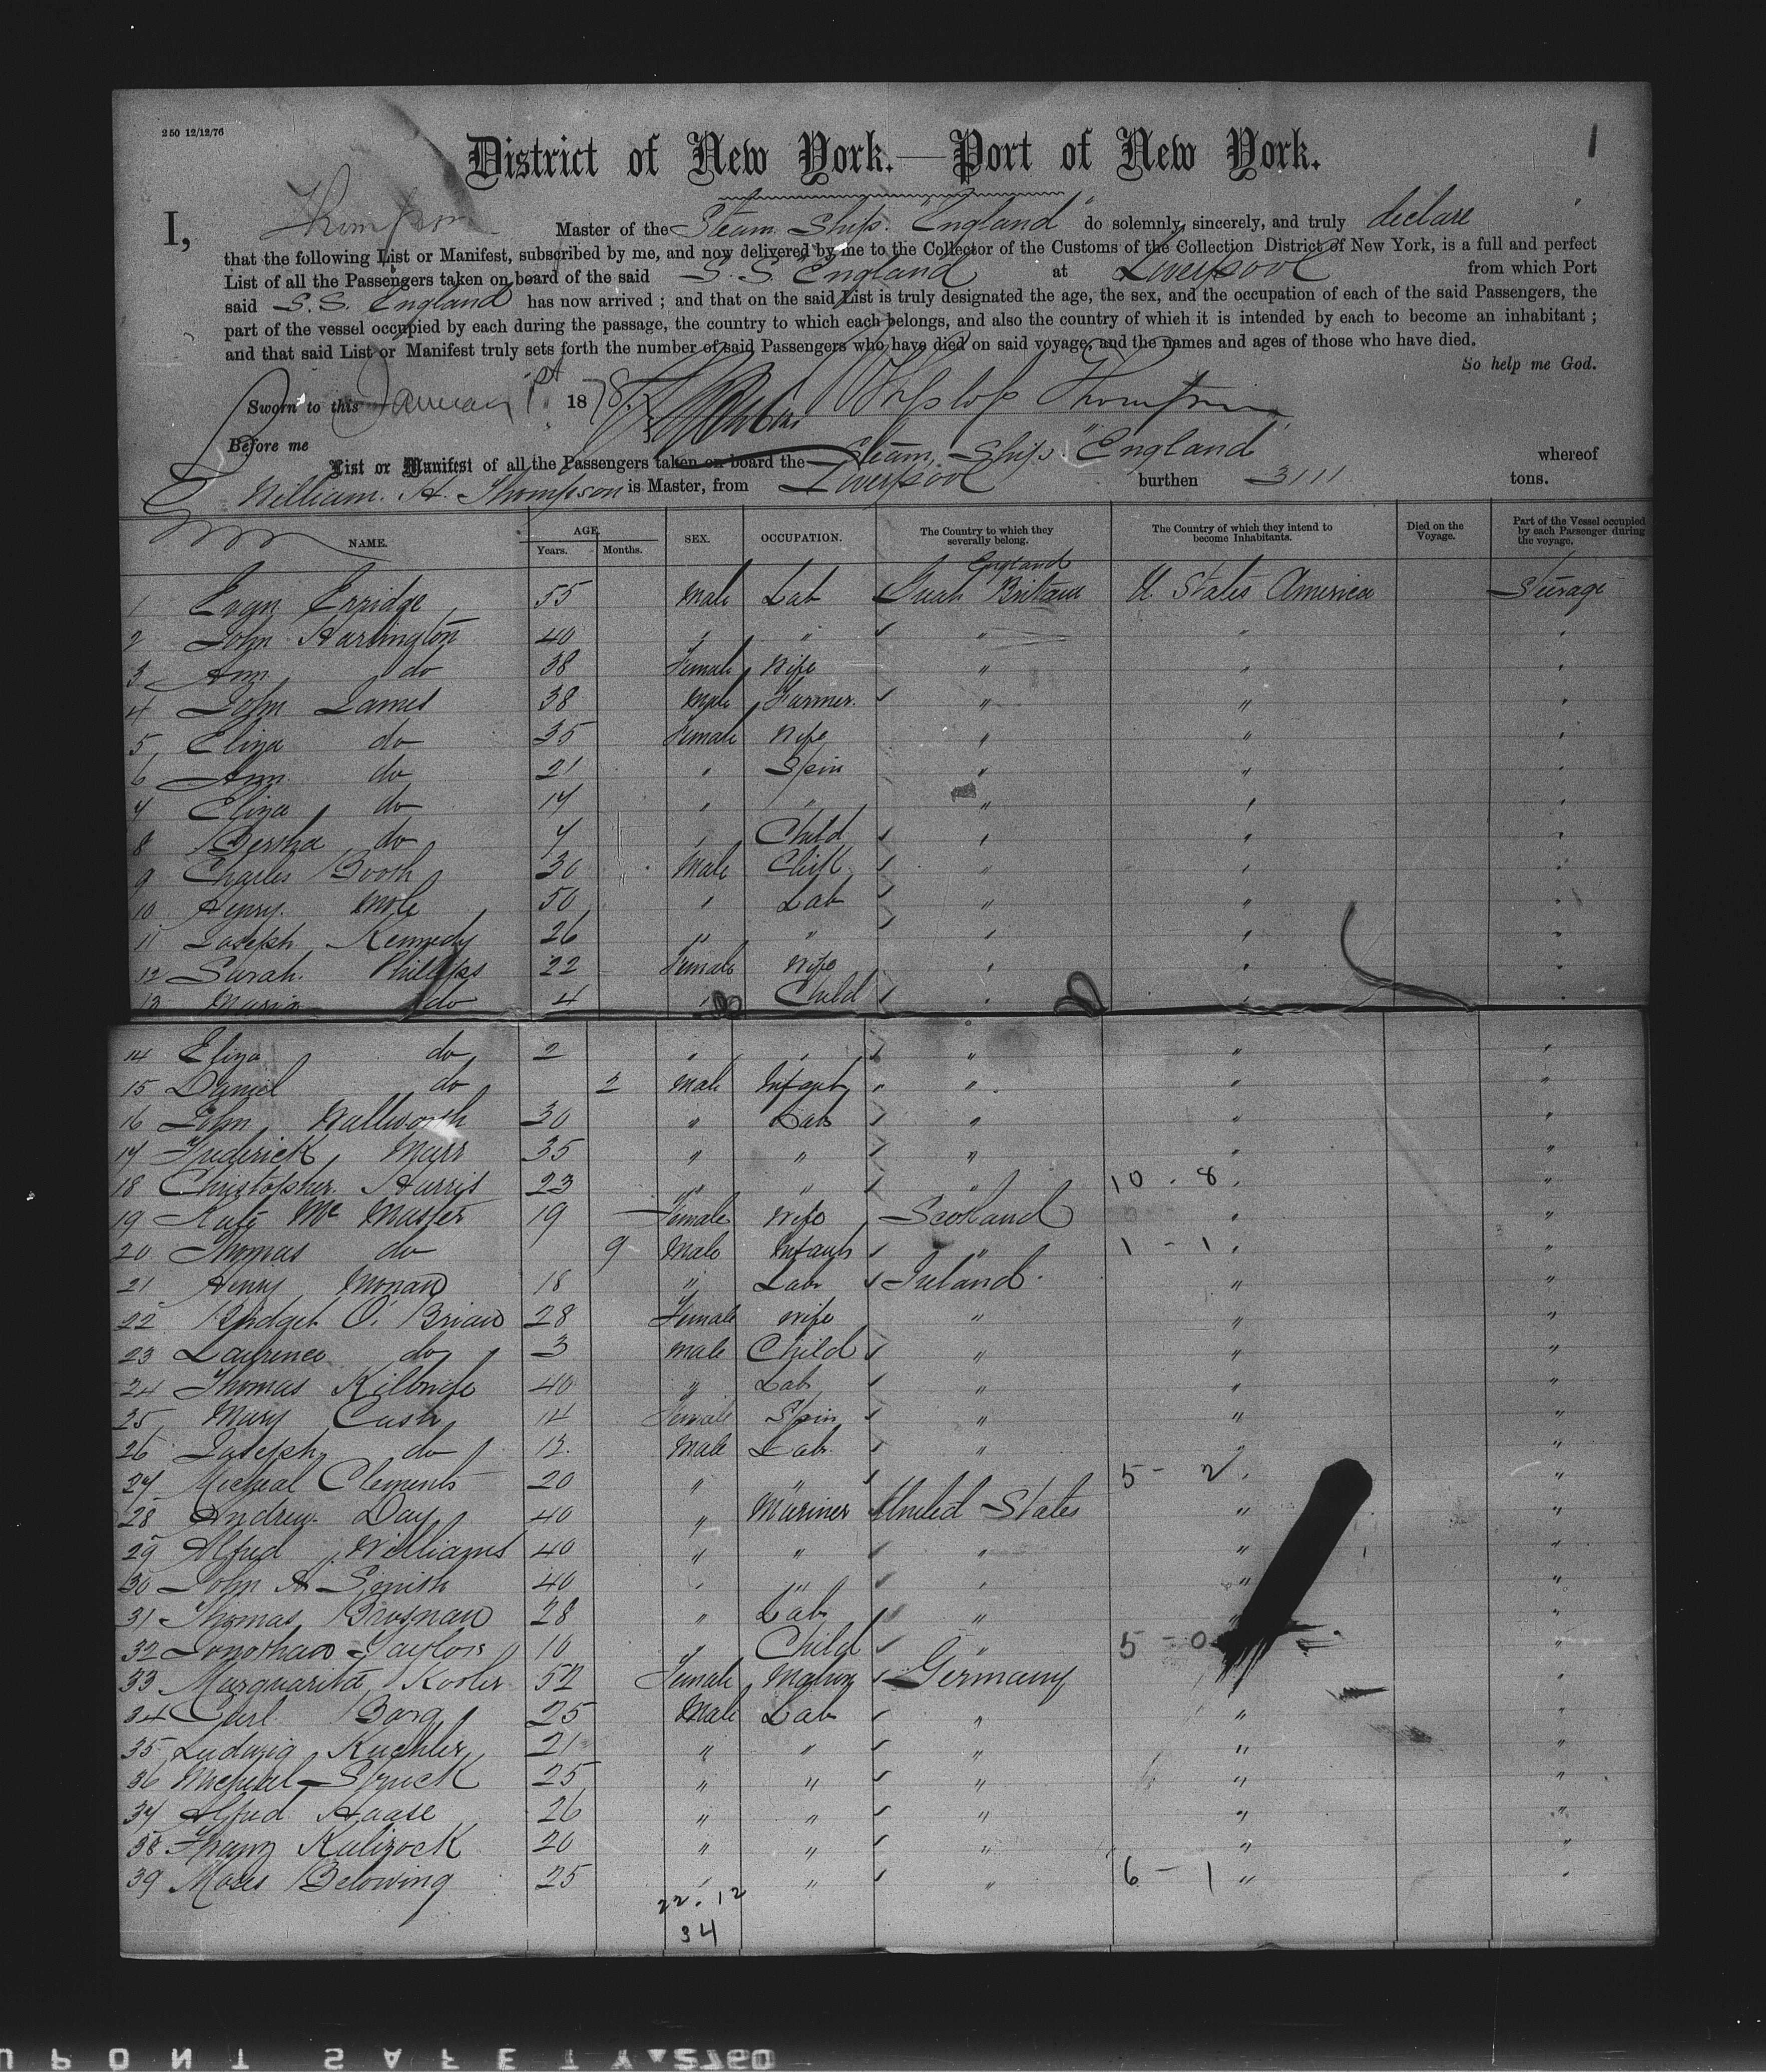 250 12/12/76
1
District of New York.—Port of New York.
I, Thompson Master of the Steam Ship "England" do solemnly, sincerely, and truly declare
that the following List or Manifest, subscribed by me, and now delivered by me to the Collector of the Customs of the Collection District of New York, is a full and perfect
List of all the Passengers taken on board of the said S. S. England at Liverpool from which Port
said S. S. England has now arrived ; and that on the said List is truly designated the age, the sex, and the occupation of each of the said Passengers, the
part of the vessel occupied by each during the passage, the country to which each belongs, and also the country of which it is intended by each to become an inhabitant ;
and that said List or Manifest truly sets forth the number of said Passengers who have died on said voyage, and the names and ages of those who have died.
So help me God.
Sworn to this January 1st 1878. Thompson
Before me
List or Manifest of all the Passengers taken on board the Steam Ship "England" whereof
William. H. Thompson is Master, from Liverpool burthen 3111 tons.
NAME. AGE. Years. Months. SEX. OCCUPATION. The Country to which they severally belong. The Country of which they intend to become Inhabitants. Died on the Voyage. Part of the Vessel occupied by each Passenger during the voyage.
England
1 Erridge 55 Male Lab Great Britain U States America Steerage
2 John Harrington 40 " " " " "
3 Ann do 38 Female Wife " " "
4 John James 38 Male Farmer. " " "
5 Eliza do 35 Female Wife " " "
6 Ann do 21 " Spin " " "
7 Eliza do 17 " " " " "
8 Bertha do 7 " Child " " "
9 Charles Booth 30 Male Clerk " " "
10 Henry. Mole 50 " Lab " " "
11 Joseph Kennedy 26 " " " " "
12 Sarah. Phillips 22 Female Wife " " "
13 Maria do 4 " Child " " "
14 Eliza do 2 " " " " "
15 Daniel do 2 Male Infant " " "
16 John Wallworth 30 " Lab " " "
17 Frederick Marr 35 " " " " "
18 Christopher Harris 23 " " " 10 - 8 " "
19 Kate Mc Master 19 Female Wife Scotland " "
20 Thomas do 9 Male Infant " 1 - 1 " "
21 Henry Monan 18 " Lab Ireland " "
22 Bridget O'Brian 28 Female Wife " " "
23 Laurence do 3 Male Child " " "
24 Thomas Kilbride 40 " Lab " " "
25 Mary Cash 14 Female Spin " " "
26 Joseph do 12 Male Lab " " "
27 Micheal Clements 20 " " " 5 - 2 " "
28 Andrew Day 40 " Mariner United States " "
29 Alfred Williams 40 " " " " "
30 John A Smith 40 " " " " "
31 Thomas Brosnan 28 " Lab " " "
32 Jonathan Taylor 10 " Child " 5 - 0 "
33 Marguarita Kooler 52 Female Germany "
34 Carl Borg 25 Male Lab " " "
35 Ludwig Kuchler 21 " " " " "
36 Micheal Struck 25 " " " " "
37 Alfred Haase 26 " " " " "
38 Franz Kulizock 20 " " " " "
39 Moses Belowing 25 " " " 6 - 1 " "
22. 12
34
DUPONT SAFETY 2760